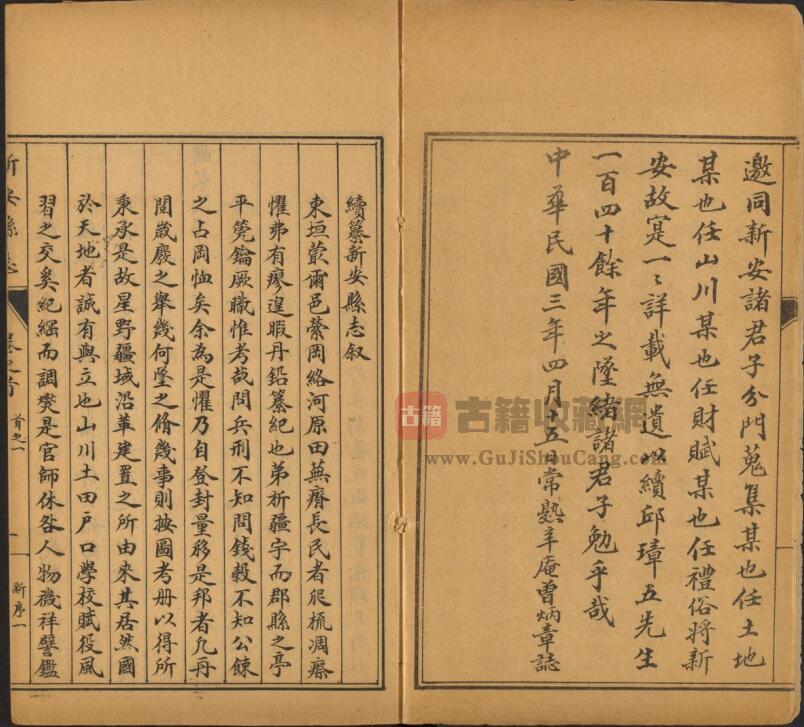 邀同新安諸君子分門蒐集某也任土地
某也任山川某也任財賦某也任禮俗將新
安故寔一〻詳載無遺以續邱璋五先生
一百四十餘年之墜緒諸君子勉乎哉
中華民國三年四月十五日常熟辛庵曾炳章誌
續纂新安縣志叙
東垣蕞爾邑縈岡絡河原田蕪瘠長民者爬梳凋瘵
懼弗有瘳遑暇丹鉛纂紀也弟析疆宇而郡縣之亭
平筦鑰厥職惟考哉問兵刑不知問錢穀不知公餗
之占罔恤矣余為是懼乃自登封量移是邦者凡再
閱歲廢之舉幾何墜之脩幾事則按圖考册以得所
秉承是故星野疆域沿革建置之所由來其居然國
於天地者誠有與立也山川土田戶口學校賦役風
習之交奚紀綱而調燮是官師休咎人物禨祥譬鑑
新安縣志
卷之首
首之一
一
新序一
古籍
古籍收藏網
www.GuJiShouCang.com